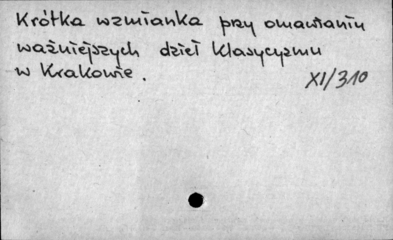 Krótka wzmianka przy omawianiu
ważniejszych dzieł Klasycyzmu
w Krakowie.
XI/310